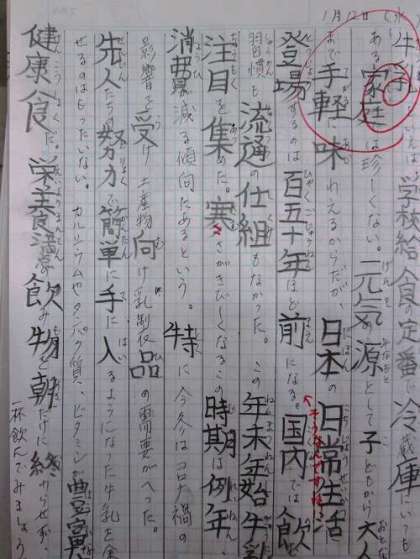 1月12日(水
牛乳。学校給食の定番で冷蔵庫にいつも
ある家庭は珍しくない。元気の源として子どもから大
まで手軽味わえるからだが、日本の日常生活
登場するのは百五十年ほど前になる。国内では飲
習慣も流通の仕組もなかった。この年末年始牛乳
注目を集めた。寒さがきびしくなるこの時期は例年、
消費減る傾向にあるという。特に今冬はコロナ禍の
影響を受け土産物向け乳製品の需要がへった。
先人たちの努力で簡単に手に入るようになった牛乳を
せるのはもったいない。カルシウムやタンパク質、ビタミンが豊富
健康食。栄養食満点飲み物を朝だけに終わらせず、
一杯飲んでみましょう